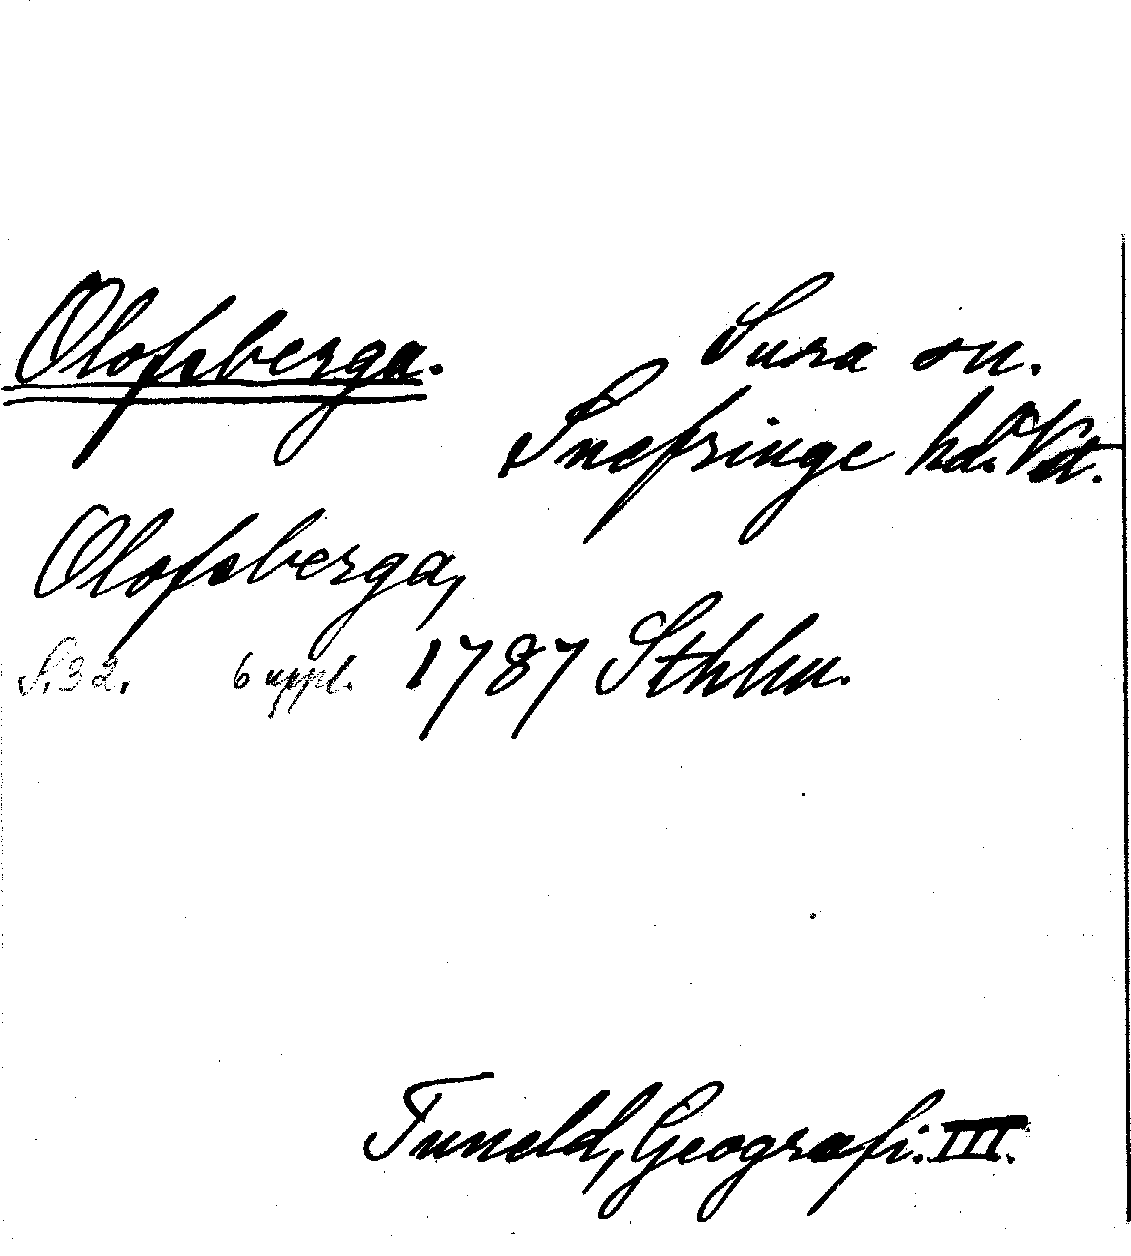 Olofsberga. Sura sn.
Snefringe hd. Vstm.
Olofsberga,
S. 32. 6 uppl. 1787 Sthlm.
Tuneld, Geografi. III.